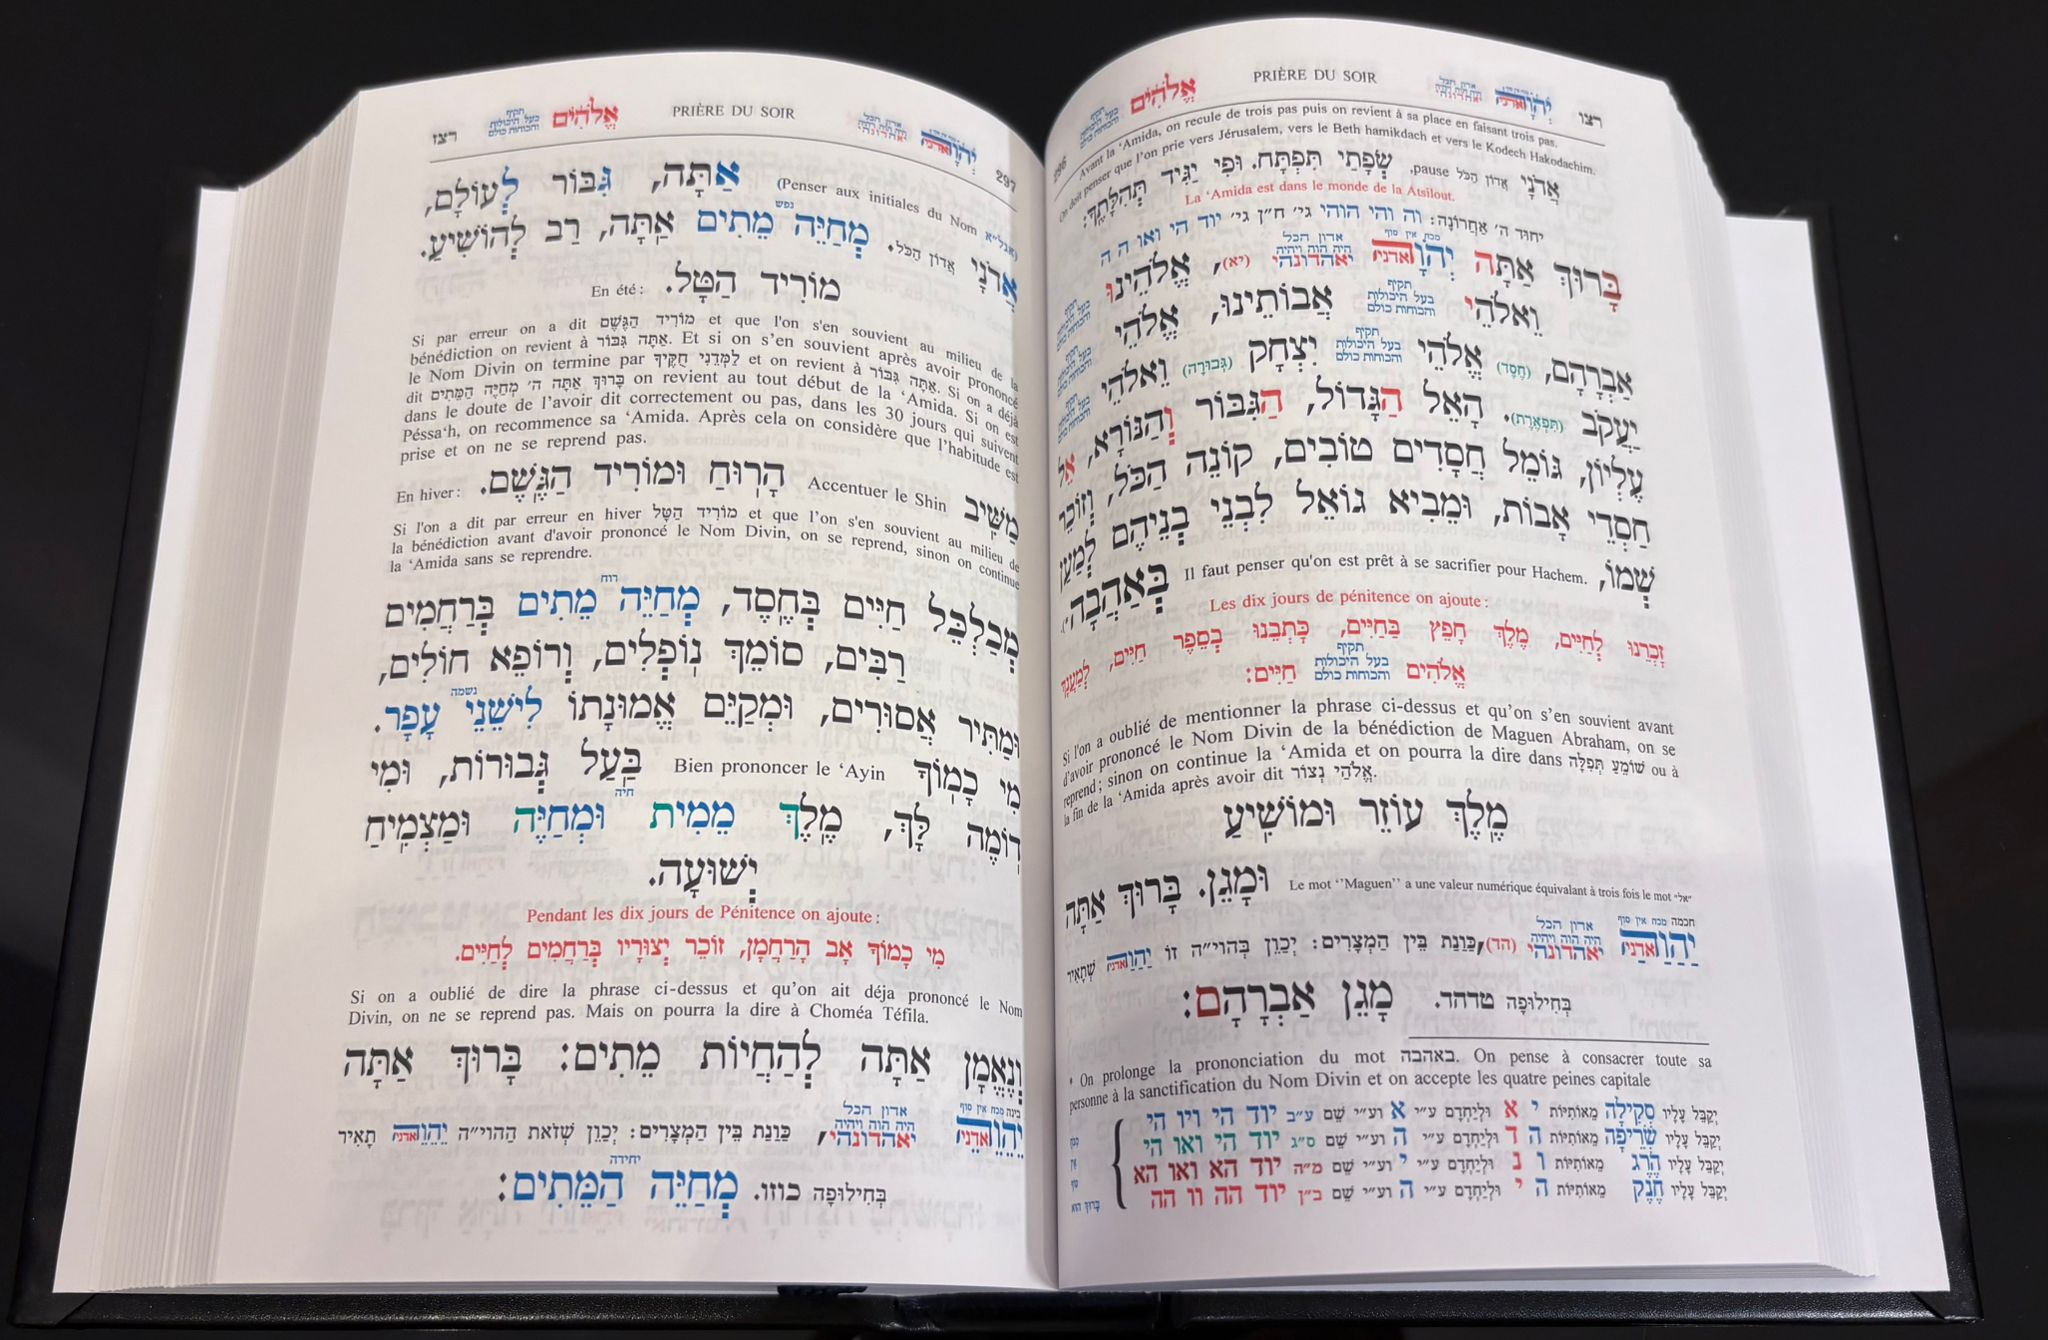 רצו PRIÈRE DU SOIR אֱלֹהִים 296
Avant la ‘Amida, on recule de trois pas puis on revient à sa place en faisant trois pas.
On doit penser que l’on prie vers Jérusalem, vers le Beth hamikdach et vers le Kodech Hakodachim.
אֲדֹנָי אֲדוֹן הַכֹּל pause, שְׂפָתַי תִּפְתָּח. וּפִי יַגִּיד תְּהִלָּתֶךָ:
La ‘Amida est dans le monde de la Atsilout.
יחוד ה׳ אַחֲרוֹנָה: וה והי הוהי גי׳ ח״ן גי׳ יוד הי ואו ה ה
בָּרוּךְ אַתָּה יְהֹוָה יאהדונהי (יא), אֱלֹהֵינוּ
וֵאלֹהֵי אֲבוֹתֵינוּ, אֱלֹהֵי
אַבְרָהָם, (חֶסֶד) אֱלֹהֵי יִצְחָק (גְּבוּרָה) וֵאלֹהֵי
יַעֲקֹב (תִּפְאֶרֶת). הָאֵל הַגָּדוֹל, הַגִּבּוֹר וְהַנּוֹרָא, אֵל
עֶלְיוֹן, גּוֹמֵל חֲסָדִים טוֹבִים, קוֹנֵה הַכֹּל, וְזוֹכֵר
חַסְדֵי אָבוֹת, וּמֵבִיא גוֹאֵל לִבְנֵי בְנֵיהֶם לְמַעַן
שְׁמוֹ, Il faut penser qu'on est prêt à se sacrifier pour Hachem. בְּאַהֲבָה
Les dix jours de pénitence on ajoute :
זָכְרֵנוּ לְחַיִּים, מֶלֶךְ חָפֵץ בַּחַיִּים, כָּתְבֵנוּ בְּסֵפֶר חַיִּים, לְמַעֲנָךְ
אֱלֹהִים תקיף בעל היכולות והכוחות כולם חַיִּים:
Si l'on a oublié de mentionner la phrase ci-dessus et qu’on s’en souvient avant
d'avoir prononcé le Nom Divin de la bénédiction de Maguen Abraham, on se
reprend ; sinon on continue la ‘Amida et on pourra la dire dans שׁוֹמֵעַ תְּפִלָּה ou à
la fin de la ‘Amida après avoir dit אֱלֹהַי נְצוֹר.
מֶלֶךְ עוֹזֵר וּמוֹשִׁיעַ
וּמָגֵן. בָּרוּךְ אַתָּה Le mot ‘‘Maguen’’ a une valeur numérique équivalant à trois fois le mot "אל"
יאהדונהי (הד), כַּוָּנַת בֵּין הַמְּצָרִים: יְכַוֵּן בְּהוי״ה זוֹ שֶׁתָּאִיר
בְּחִילוּפָהּ טדהד. מָגֵן אַבְרָהָם:
* On prolonge la prononciation du mot באהבה. On pense à consacrer toute sa
personne à la sanctification du Nom Divin et on accepte les quatre peines capitale
יְקַבֵּל עָלָיו סְקִילָה מֵאוֹתִיּוֹת י א וּלְיַחֲדָם ע״י א וע״י שֵׁם ע״ב יוד הי ויו הי
יְקַבֵּל עָלָיו שְׂרֵיפָה מֵאוֹתִיּוֹת ה ד וּלְיַחֲדָם ע״י ה וע״י שֵׁם ס״ג יוד הי ואו הי
יְקַבֵּל עָלָיו הֶרֶג מֵאוֹתִיּוֹת ו נ וּלְיַחֲדָם ע״י י וע״י שֵׁם מ״ה יוד הא ואו הא
יְקַבֵּל עָלָיו חֶנֶק מֵאוֹתִיּוֹת ה י וּלְיַחֲדָם ע״י ה וע״י שֵׁם ב״ן יוד הה וו הה
297 PRIÈRE DU SOIR אֱלֹהִים תקיף בעל היכולות והכוחות כולם רצז
(Penser aux initiales du Nom אגל״א) אַתָּה, גִּבּוֹר לְעוֹלָם,
אֲדֹנָי אֲדוֹן הַכֹּל. מְחַיֵּה מֵתִים אַתָּה, רַב לְהוֹשִׁיעַ.
En été : מוֹרִיד הַטָּל.
Si par erreur on a dit מוֹרִיד הַגֶּשֶׁם et que l'on s'en souvient au milieu de la
bénédiction on revient à אַתָּה גִּבּוֹר. Et si on s’en souvient après avoir prononcé
le Nom Divin on termine par לַמְּדֵנִי חֻקֶּיךָ et on revient à אַתָּה גִּבּוֹר. Si on a déjà
dit בָּרוּךְ אַתָּה ה׳ מְחַיֵּה הַמֵּתִים on revient au tout début de la ‘Amida. Si on est
dans le doute de l’avoir dit correctement ou pas, dans les 30 jours qui suivent
Péssa‘h, on recommence sa ‘Amida. Après cela on considère que l’habitude est
prise et on ne se reprend pas.
En hiver : מַשִּׁיב Accentuer le Shin הָרוּחַ וּמוֹרִיד הַגֶּשֶׁם.
Si l'on a dit par erreur en hiver מוֹרִיד הַטָּל et que l’on s'en souvient au milieu de
la bénédiction avant d'avoir prononcé le Nom Divin, on se reprend, sinon on continue
la ‘Amida sans se reprendre.
מְכַלְכֵּל חַיִּים בְּחֶסֶד, מְחַיֵּה מֵתִים בְּרַחֲמִים
רַבִּים, סוֹמֵךְ נוֹפְלִים, וְרוֹפֵא חוֹלִים,
וּמַתִּיר אֲסוּרִים, וּמְקַיֵּם אֱמוּנָתוֹ לִישֵׁנֵי עָפָר.
מִי כָמוֹךָ Bien prononcer le ‘Ayin בַּעַל גְּבוּרוֹת, וּמִי
דוֹמֶה לָּךְ, מֶלֶךְ מֵמִית וּמְחַיֶּה וּמַצְמִיחַ
יְשׁוּעָה.
Pendant les dix jours de Pénitence on ajoute :
מִי כָמוֹךָ אָב הָרַחֲמָן, זוֹכֵר יְצוּרָיו בְּרַחֲמִים לְחַיִּים.
Si on a oublié de dire la phrase ci-dessus et qu’on ait déja prononcé le Nom
Divin, on ne se reprend pas. Mais on pourra la dire à Choméa Téfila.
וְנֶאֱמָן אַתָּה לְהַחֲיוֹת מֵתִים: בָּרוּךְ אַתָּה
יאהדונהי, כַּוָּנַת בֵּין הַמְּצָרִים: יְכַוֵּן שֶׁזֹּאת הַהוי״ה תָּאִיר
בְּחִילוּפָהּ כוזו. מְחַיֵּה הַמֵּתִים: